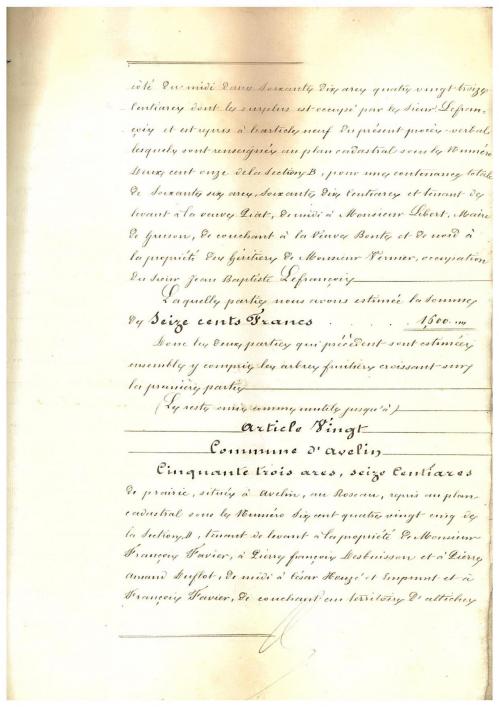 côté du midi dans soixante dix ares quatre vingt treize
Centiares dont le surplus est occupé par le Sieur Lefran-
çois et est repris à l'article neuf du présent procès-verbal
lesquels sont renseignés au plan cadastral sous le Numéro
Deux cent onze de la Section B, pour une contenance totale
de soixante six ares, soixante dix Centiares et tenant de
levant à la veuve Piat, de midi à Monsieur Libert, Maire
de Gruson, de couchant à la Veuve Bonte et de nord à
la propriété des héritiers de Monsieur Vernier, occupation
du Sieur Jean Baptiste Lefrançois
Laquelle partie nous avons estimée la somme
de Seize cents Francs 1,600. "
Donc les deux parties qui précèdent sont estimées
ensemble y compris les arbres fruitiers croissant sur
la première partie
(Le reste omis comme inutile jusqu'à)
Article Vingt
Commune d'Avelin
Cinquante trois ares, seize Centiares
de prairie, située à Avelin, au Roseau, repris au plan
cadastral sous le Numéro Six cent quatre vingt cinq de
la Section D, tenant de levant à la propriété de Monsieur
François Favier, à Pierre François Desbuisson et à Pierre
Amand Duflot, de midi à César Houzé et à
François Favier, de couchant au territoire D'attiches